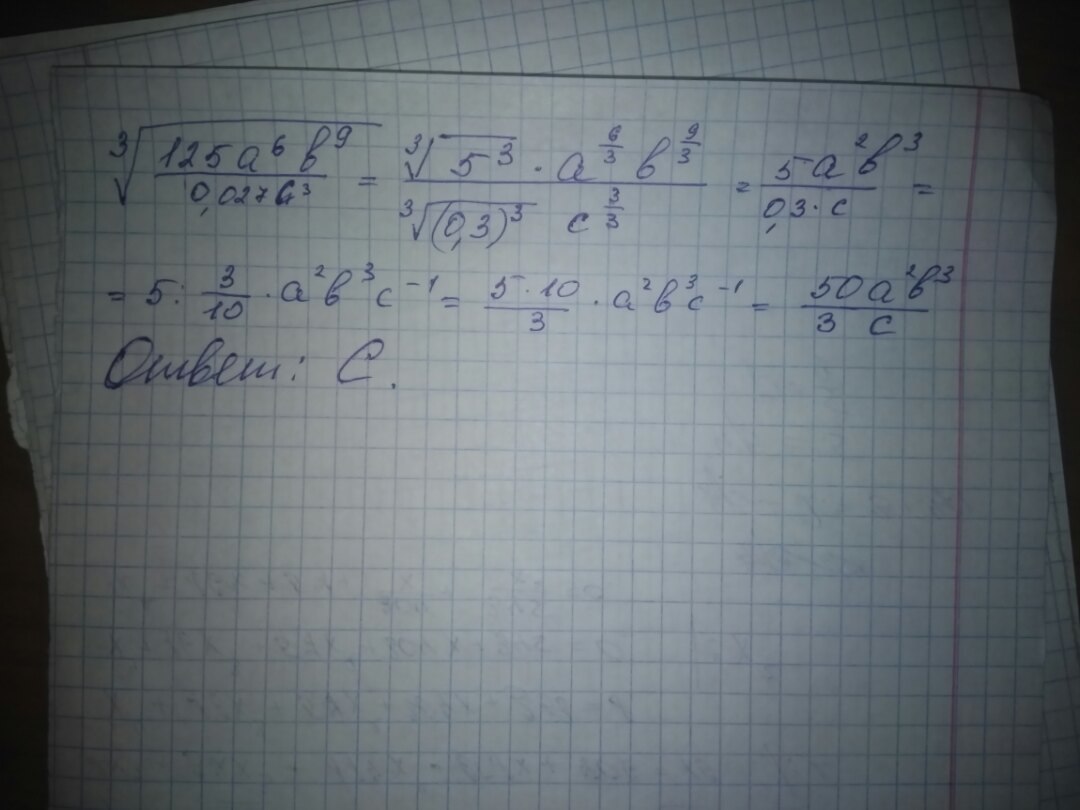 ∛(125a⁶b⁹ / 0,027c³) = (∛5³ · a^(6/3) b^(9/3)) / (∛(0,3)³ c^(3/3)) = 5a²b³ / 0,3·c =
= 5 : 3/10 · a²b³c⁻¹ = 5·10/3 · a²b³c⁻¹ = 50a²b³ / 3c
Ответ: C.